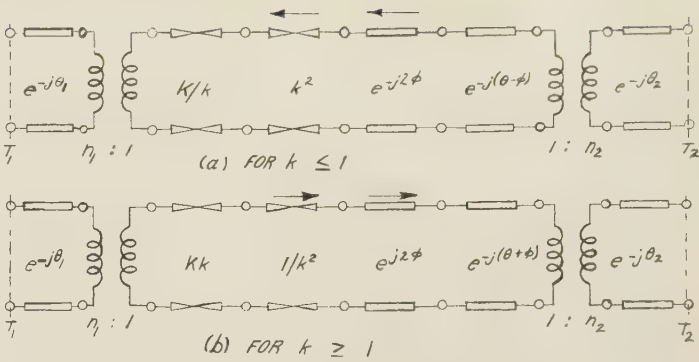 e^{-jθ₁} K/k k² e^{-j2φ} e^{-j(θ-φ)} e^{-jθ₂}
T₁ n₁ : 1 1 : n₂ T₂
(a) FOR k ≤ 1
e^{-jθ₁} Kk 1/k² e^{j2φ} e^{-j(θ+φ)} e^{-jθ₂}
T₁ n₁ : 1 1 : n₂ T₂
(b) FOR k ≥ 1